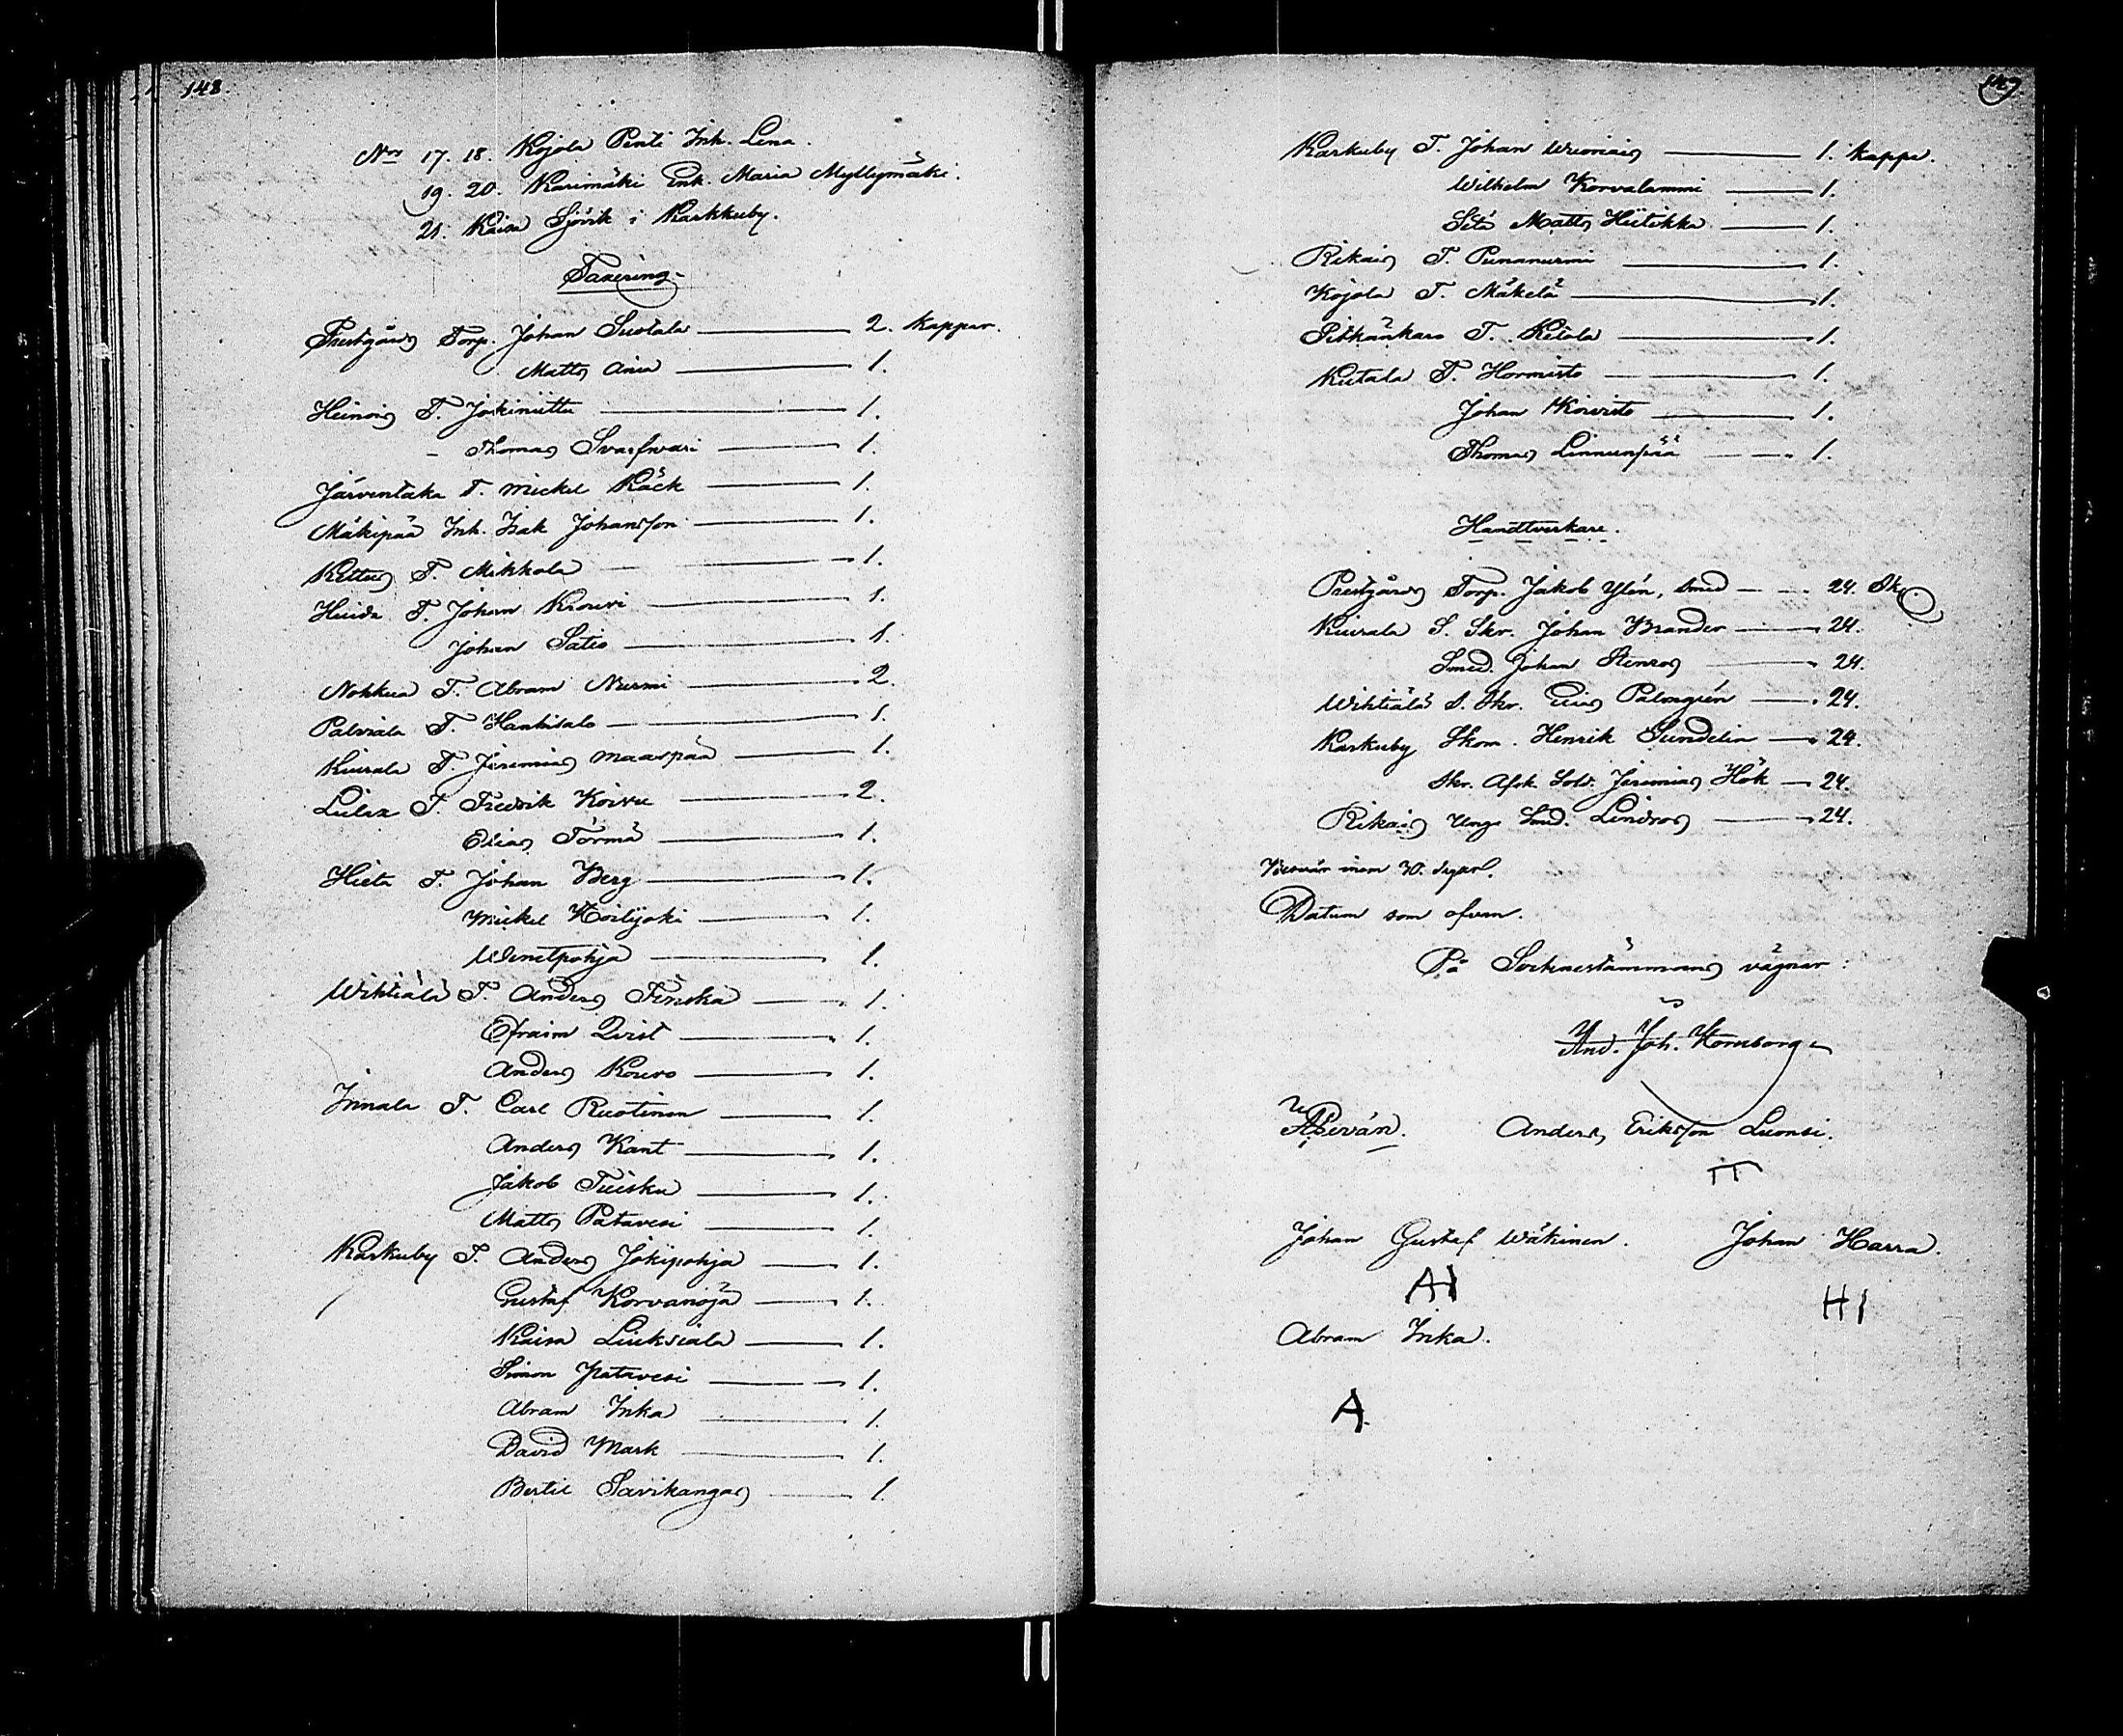 148.
N:r 17. 18. Kojola Penti Inh. Lena.
19. 20. Karimäki Enk. Maria Myllymäki.
21. Kaisa Sjövik i Karkkuby.
Taxering.
Prestgårds Torp. Johan Suotala 2. Kappar.
Matts Ania 1.
Heinois T. Jokiniittu 1.
- Thomas Svarfvari 1.
Järventaka T. Mickel Räck 1.
Mäkipää Inh. Isak Johansson 1.
Kettus T. Mikkola 1.
Huida T. Johan Krouvi 1.
Johan Satio 1.
Nohkua T. Abram Nurmi 2.
Palviala T. Hankisalo 1.
Kiurala T. Jeremias Maaspää 1.
Liilax T. Fredrik Koivu 2.
Elias Törmä 1.
Hieta T. Johan Berg 1.
Mickel Koilijoki 1.
Wenetpohja 1.
Wihtiälä T. Anders Finska 1.
Efraim Qvist 1.
Anders Kouvo 1.
Innala T. Carl Ruotinen 1.
Anders Kant 1.
Jakob Tuisku 1.
Matts Patavesi 1.
Karkuby T. Anders Jokipohja 1.
Gustaf Korvanoja 1.
Kaisa Liuksiala 1.
Simon Patavesi 1.
Abram Inka 1.
David Mark 1.
Bertil Savikangas 1.
149
Karkuby T. Johan 1. Kappe.
Wilhelm Korvalammi 1.
Matts Hiitikka 1.
Rikais T. Punanurmi 1.
Kojola T. Mäkelä 1.
Pitkänkaro T. Ketola 1.
Kutala T. Hormisto 1.
Johan Koivisto 1.
Thomas Linnunpää 1.
Handtverkare.
Prestgårds Torp. Jakob Ylén, Smed 24. Sk.
Kiurala S. Skr. Johan Brander 24.
Smed. Johan Stenros 24.
Wihtiälä S. Skr. Elias Palmgrén 24.
Karkuby Skom. Henrik Sundelin 24.
Skr. Afsk. Sold. Jeremias Hök 24.
Rikais Unge Smd. Lindros 24.
Besvär inom 30. dagar.
Datum som ofvan.
På Socknestämmans vägnar:
And. Joh. Hornborg
Anders Eriksson Luonsi.
TT
Johan Gustaf Wäkinen. Johan Harra.
AI HI
Abram Inka.
A